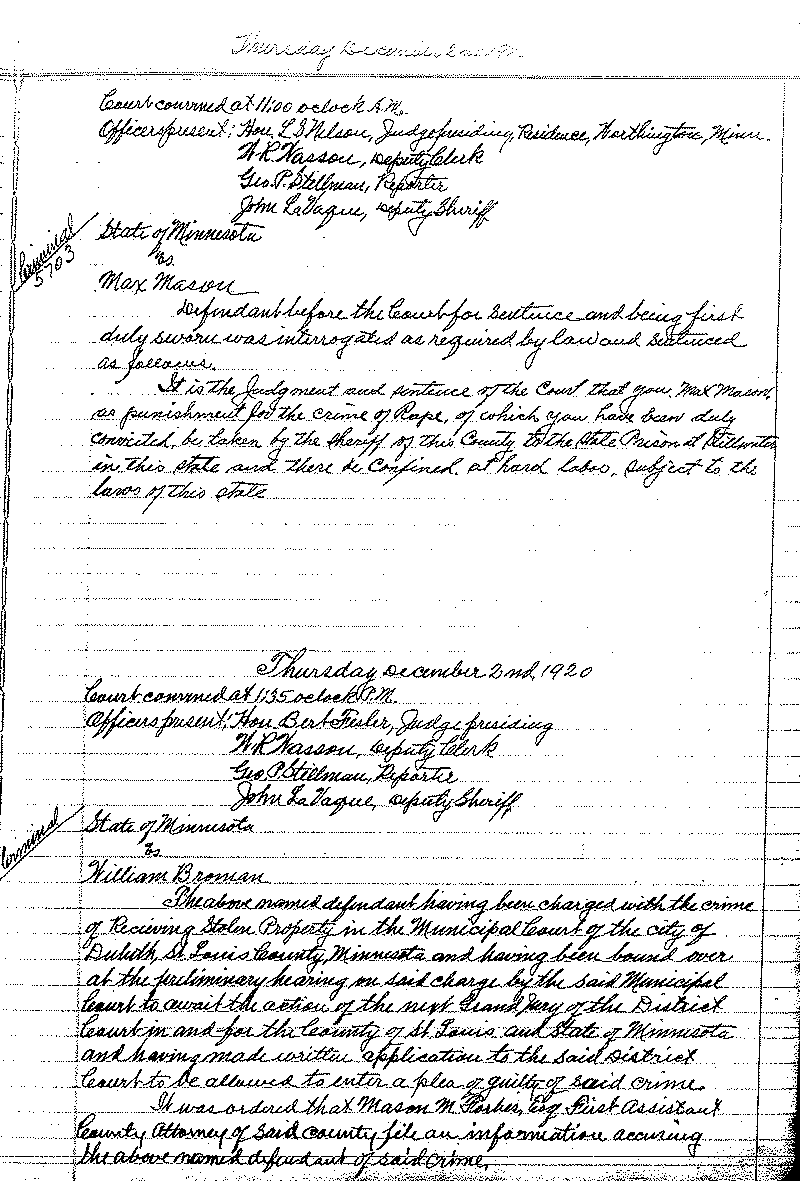 Thursday December 2nd
Court convened at 11:00 oclock A.M.
Officers present: Hon. L S Nelson, Judge presiding, Residence, Worthington, Minn.
W R Wasson, Deputy Clerk
Geo. P. Stillman, Reporter
John LaVaque, Deputy Sheriff
Criminal
5703
State of Minnesota
vs.
Max Mason
Defendant before the Court for Sentence and being first
duly sworn was interrogated as required by law and sentenced
as follows.
It is the Judgment and sentence of the Court that you, Max Mason,
as punishment for the crime of Rape, of which you have been duly
convicted, be taken by the sheriff of this County to the State Prison at Stillwater
in this state and there be confined, at hard labor, subject to the
laws of this state
Thursday December 2nd, 1920
Court convened at 1:35 oclock P.M.
Officers present: Hon Bert Fesler, Judge presiding
W R Wasson, Deputy Clerk
Geo P Stillman, Reporter
John LaVaque, Deputy Sheriff
Criminal
State of Minnesota
vs.
William Broman
The above named defendant having been charged with the crime
of Recieving Stolen Property in the Municipal Court of the city of
Duluth, St Louis County, Minnesota and having been bound over
at the preliminary hearing on said charge by the said Municipal
Court to await the action of the next Grand Jury of the District
Court in and for the County of St Louis and State of Minnesota
and having made written application to the said District
Court to be allowed to enter a plea of guilty of said crime.
It was ordered that Mason M Forbes, Esq First Assistant
County Attorney of said county file an information accusing
the above named defendant of said crime.